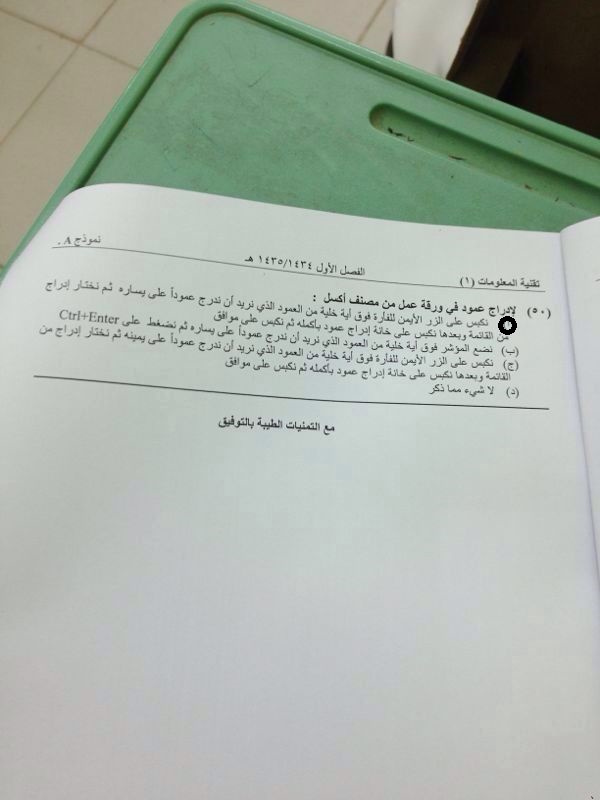 تقنية المعلومات (١) الفصل الأول ١٤٣٥/١٤٣٤ هـ نموذج A .
(٥٠) لإدراج عمود في ورقة عمل من مصنف أكسل :
نكبس على الزر الأيمن للفأرة فوق أية خلية من العمود الذي نريد أن ندرج عموداً على يساره ثم نختار إدراج
من القائمة وبعدها نكبس على خانة إدراج عمود بأكمله ثم نكبس على موافق
(ب) نضع المؤشر فوق أية خلية من العمود الذي نريد أن ندرج عموداً على يساره ثم نضغط على Ctrl+Enter
(ج) نكبس على الزر الأيمن للفأرة فوق أية خلية من العمود الذي نريد أن ندرج عموداً على يمينه ثم نختار إدراج من
القائمة وبعدها نكبس على خانة إدراج عمود بأكمله ثم نكبس على موافق
(د) لا شيء مما ذكر
مع التمنيات الطيبة بالتوفيق